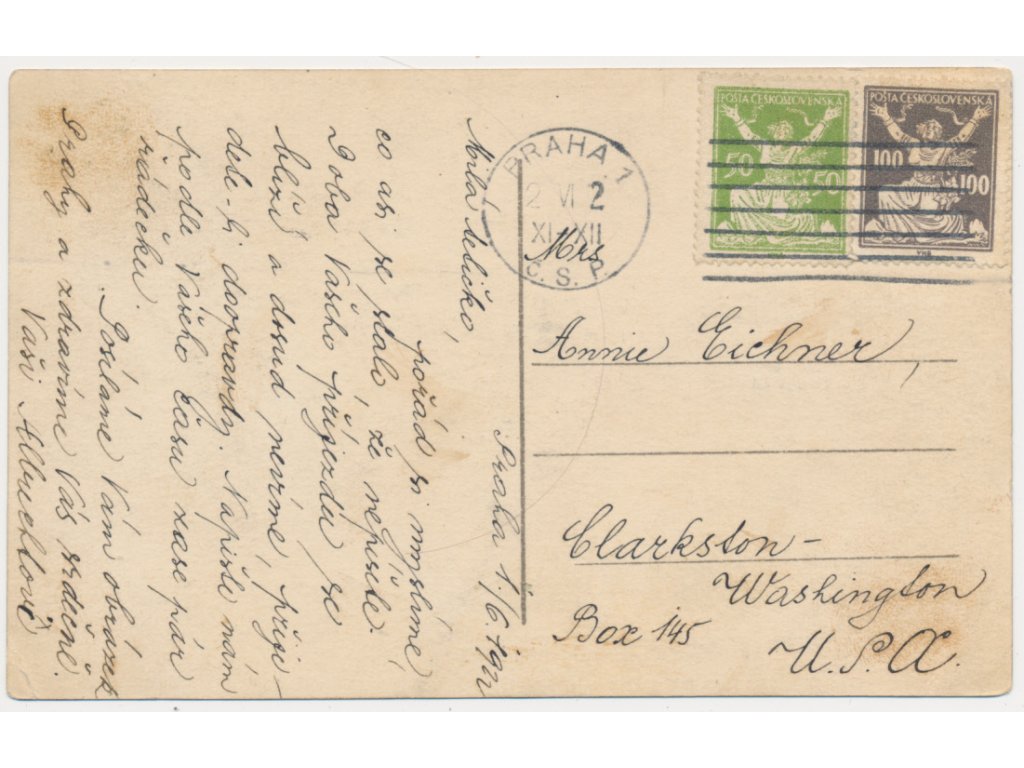 Praha 1./6. 1922
Milá tetičko,
pořád si myslíme,
co asi se stalo, že nepíšete.
Doba Vašeho příjezdu se
blíží a dosud nevíme, přije-
dete-li doopravdy. Napište nám
podle Vašeho času zase pár
řádečků.
Posíláme Vám obrázek
Prahy a zdravíme Vás srdečně.
Vaši
PRAHA 1
2 VI 2
XI-XII
Č.S.P.
POŠTA ČESKOSLOVENSKÁ
50 50
POŠTA ČESKOSLOVENSKÁ
100 100
Mrs
Annie Eichner,
Clarkston-
Washington
Box 145
U.S.A.